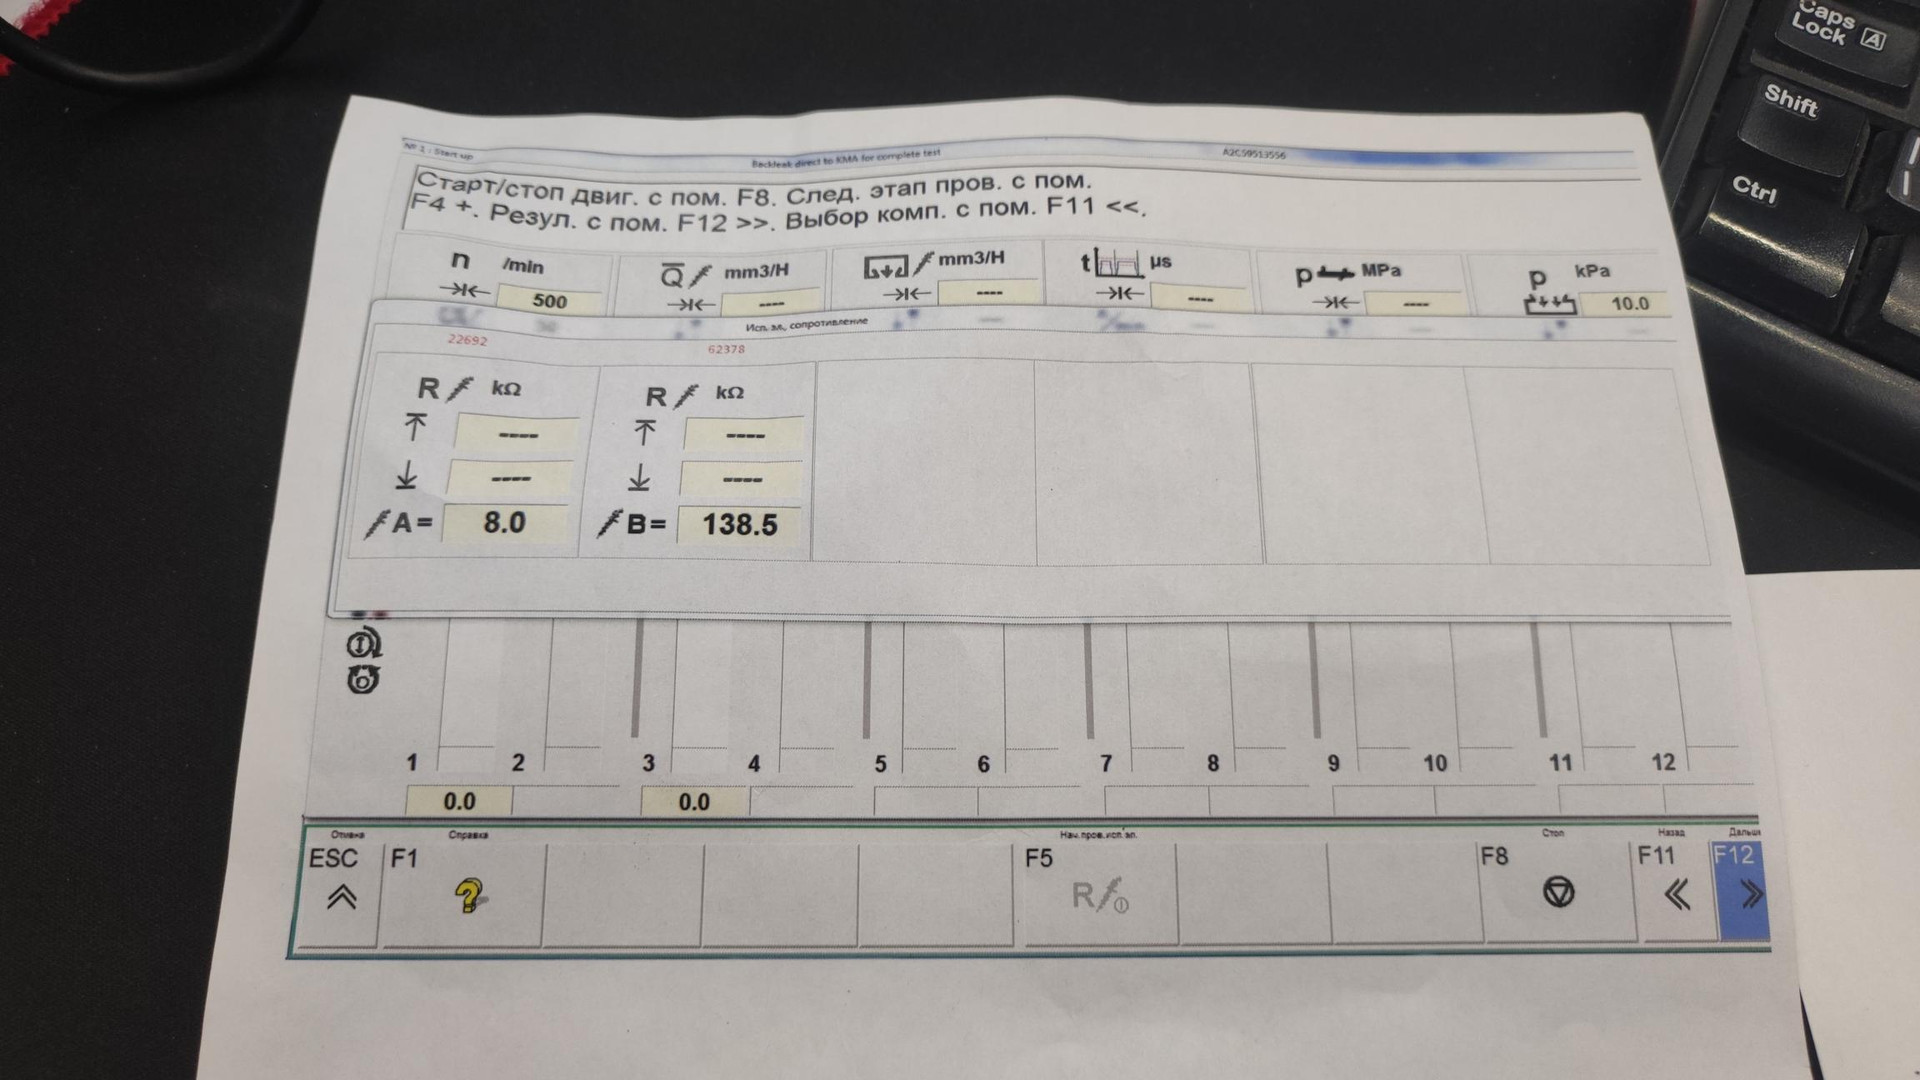 № 1 : Start up
Backleak direct to KMA for complete test
A2C59513556
Старт/стоп двиг. с пом. F8. След. этап пров. с пом.
F4 +. Резул. с пом. F12 >>. Выбор комп. с пом. F11 <<.
n /min
500
Q mm3/H
----
mm3/H
----
t µs
----
p MPa
----
p kPa
10.0
Исп. эл, сопротивление
22692
62378
R kΩ
----
----
A= 8.0
R kΩ
----
----
B= 138.5
1 2 3 4 5 6 7 8 9 10 11 12
0.0 0.0
Отмена
ESC
Справка
F1
?
Нач.пров.исп.эл.
F5
R
Стоп
F8
Назад
F11
F12
Caps
Lock A
Shift
Ctrl